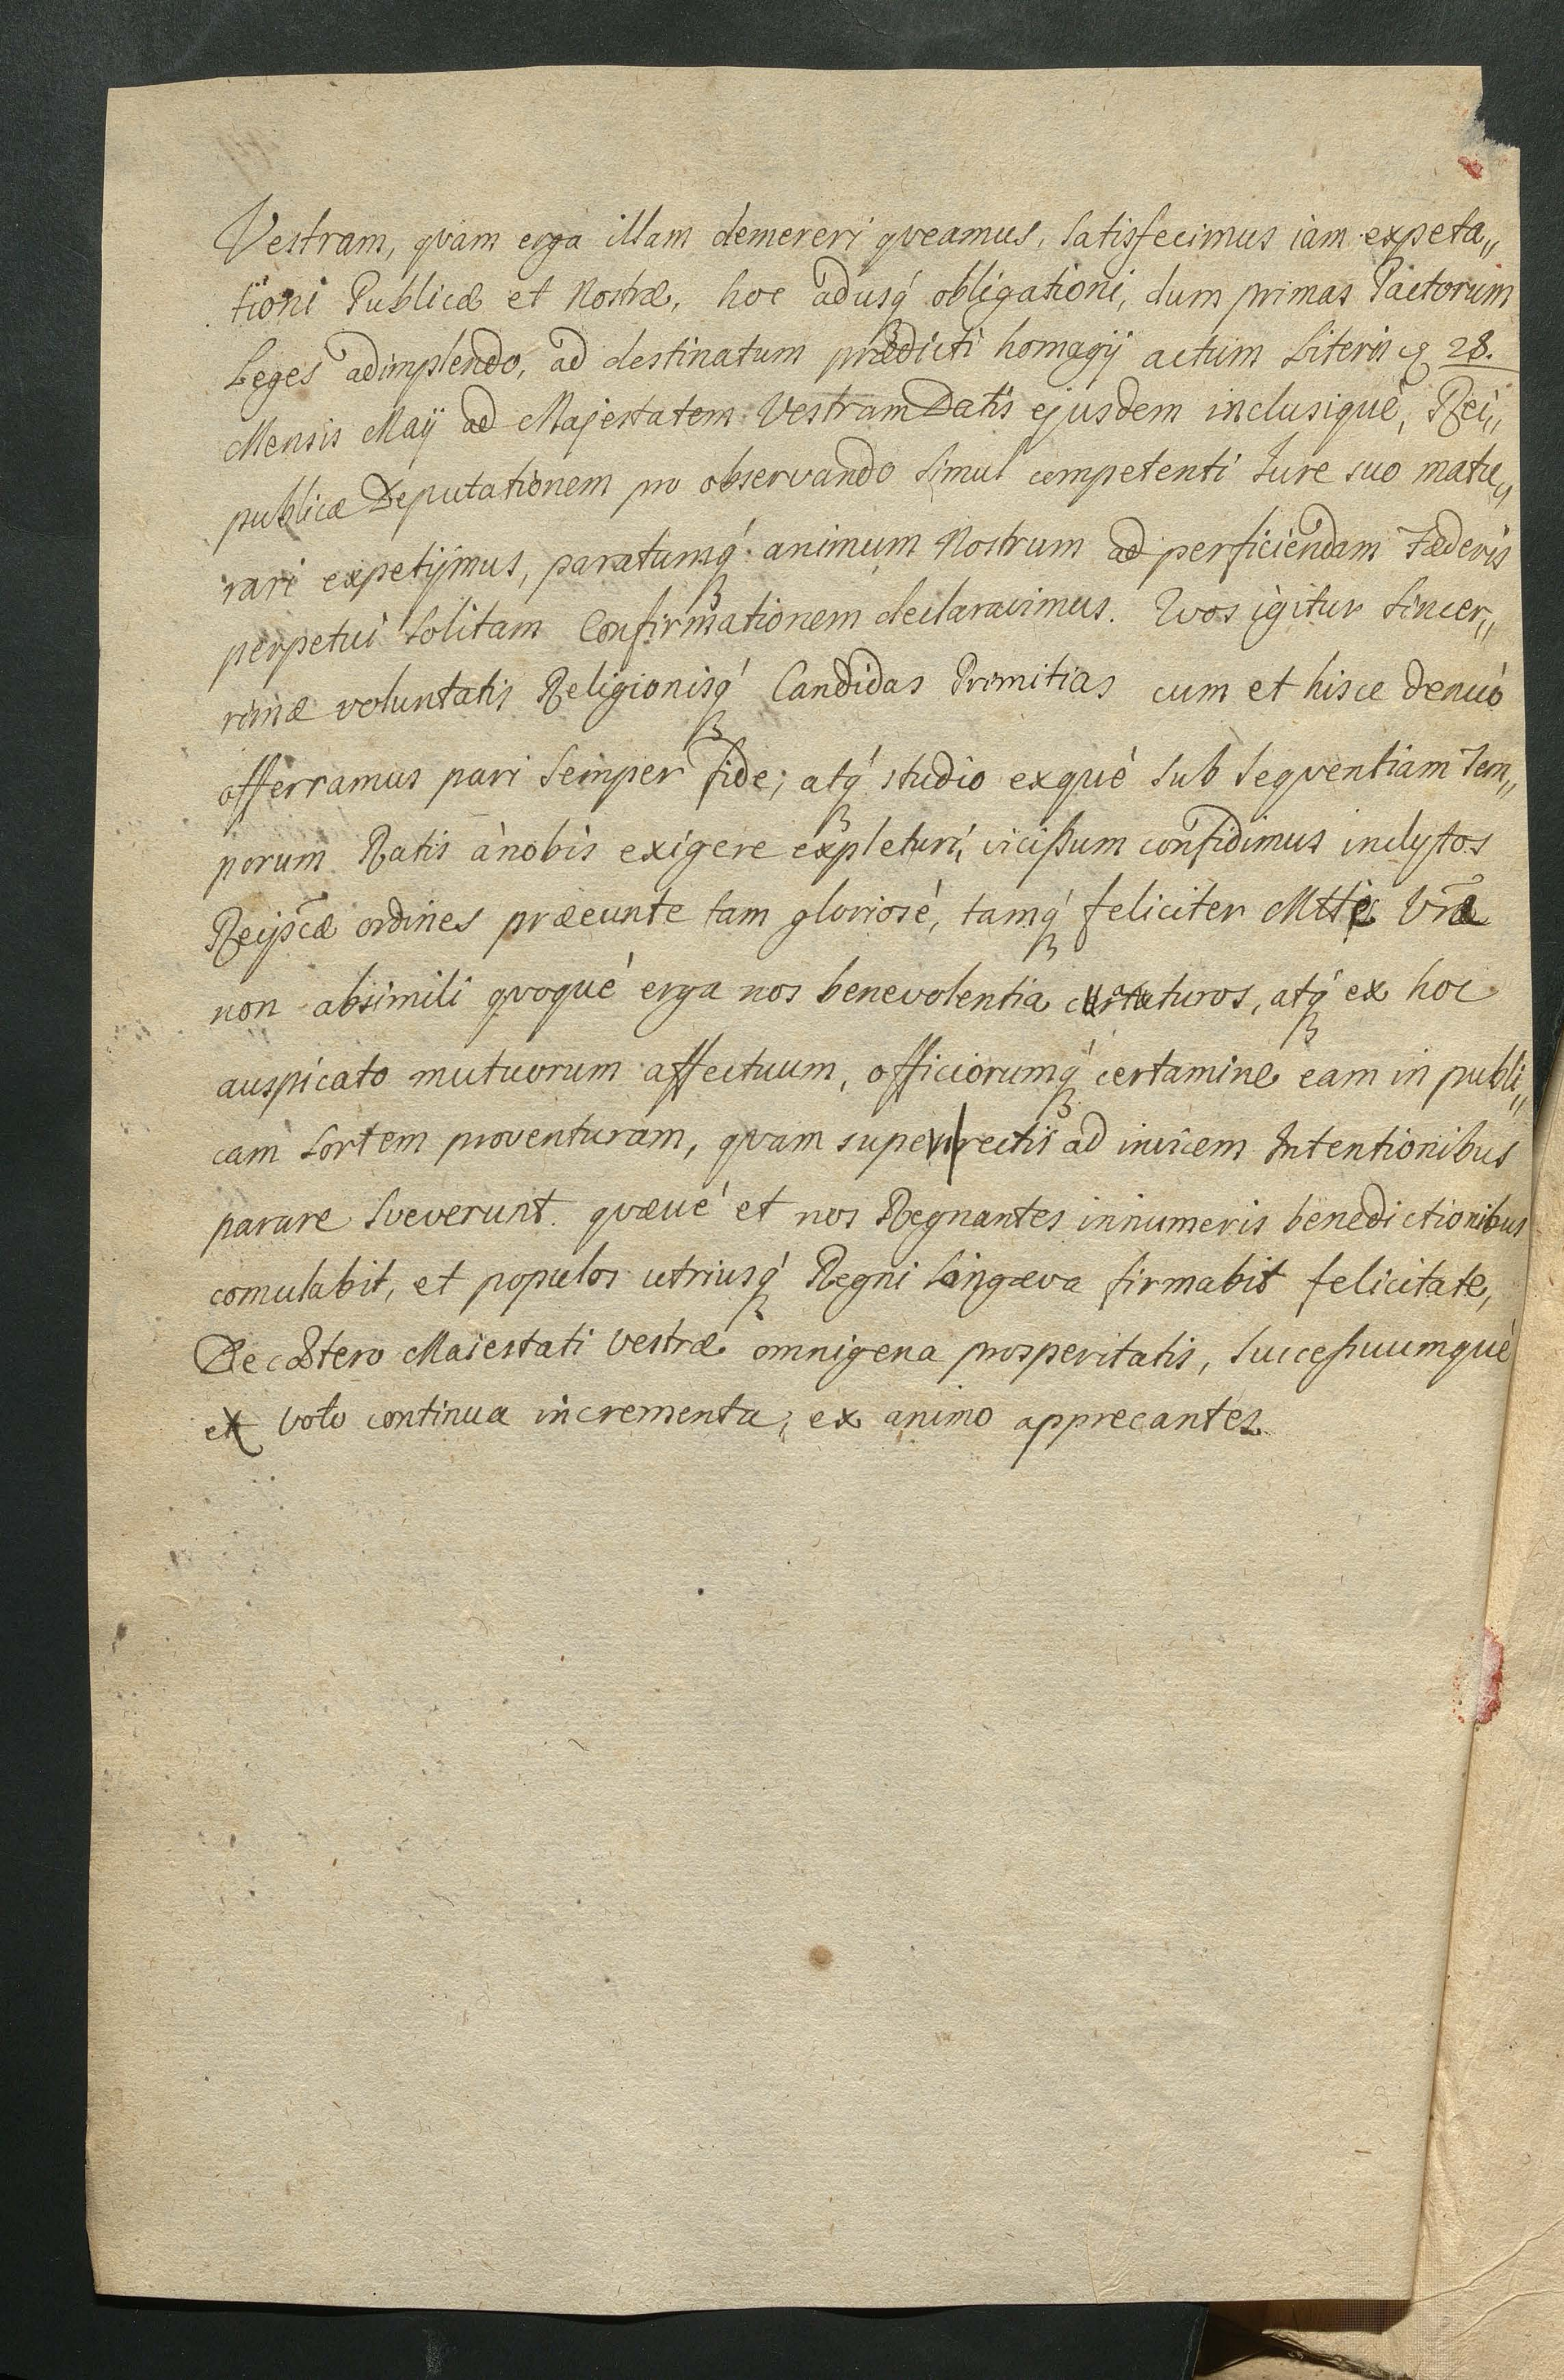 Vestram, qvam erga illam demereri qveamus, Satisfecimus iam expeta„
tioni Publicæ et Nostræ, hoc adusq́ꝫ obligationi, dum primas Pactorum
Leges adimplendo, ad destinatum prædicti homagij actum Literis 28.
Mensis Maij ad Majestatem Vestram Datis ejusdem inclusiquè, Rei„
publicæ Deputationem pro observando Simul competenti Iure suo matu„
rari expetijmus, paratumq́ꝫ animum Nostrum ad perficiendam Fæderis
perpetui Solitam Confirmationem declaravimus. Qvos igitur Sincer„
rimæ voluntatis Religionisq́ꝫ Candidas Primitias cum et hisce denuò
offerramus pari Semper fide; atq́ꝫ studio exqué Sub Seqventiam Tem„
porum Ratis ànobis exigere expleturi, vicißum confidimus inclytos
Reipscæ ordines præeunte tam gloriosé, tamq́ꝫ feliciter Mtte Vrã
non absimili qvoqué erga nos benevolentia certaturos, atq́ꝫ ex hoc
auspicato mutuorum affectuum, officiorumq́ꝫ certamine eam in publi„
cam Sortem proventuram, qvam super rectis ad invicem Intentionibus
parare Sveverunt. qvæué et nos Regnantes innumeris benedictionibus
comulabit, et populos utriusq́ꝫ Regni Longæva firmabit felicitate,
De cætero Maiestati Vestræ omnigena prosperitatis, Succeßuumqué
ex Voto continua incrementa, ex animo apprecantes.